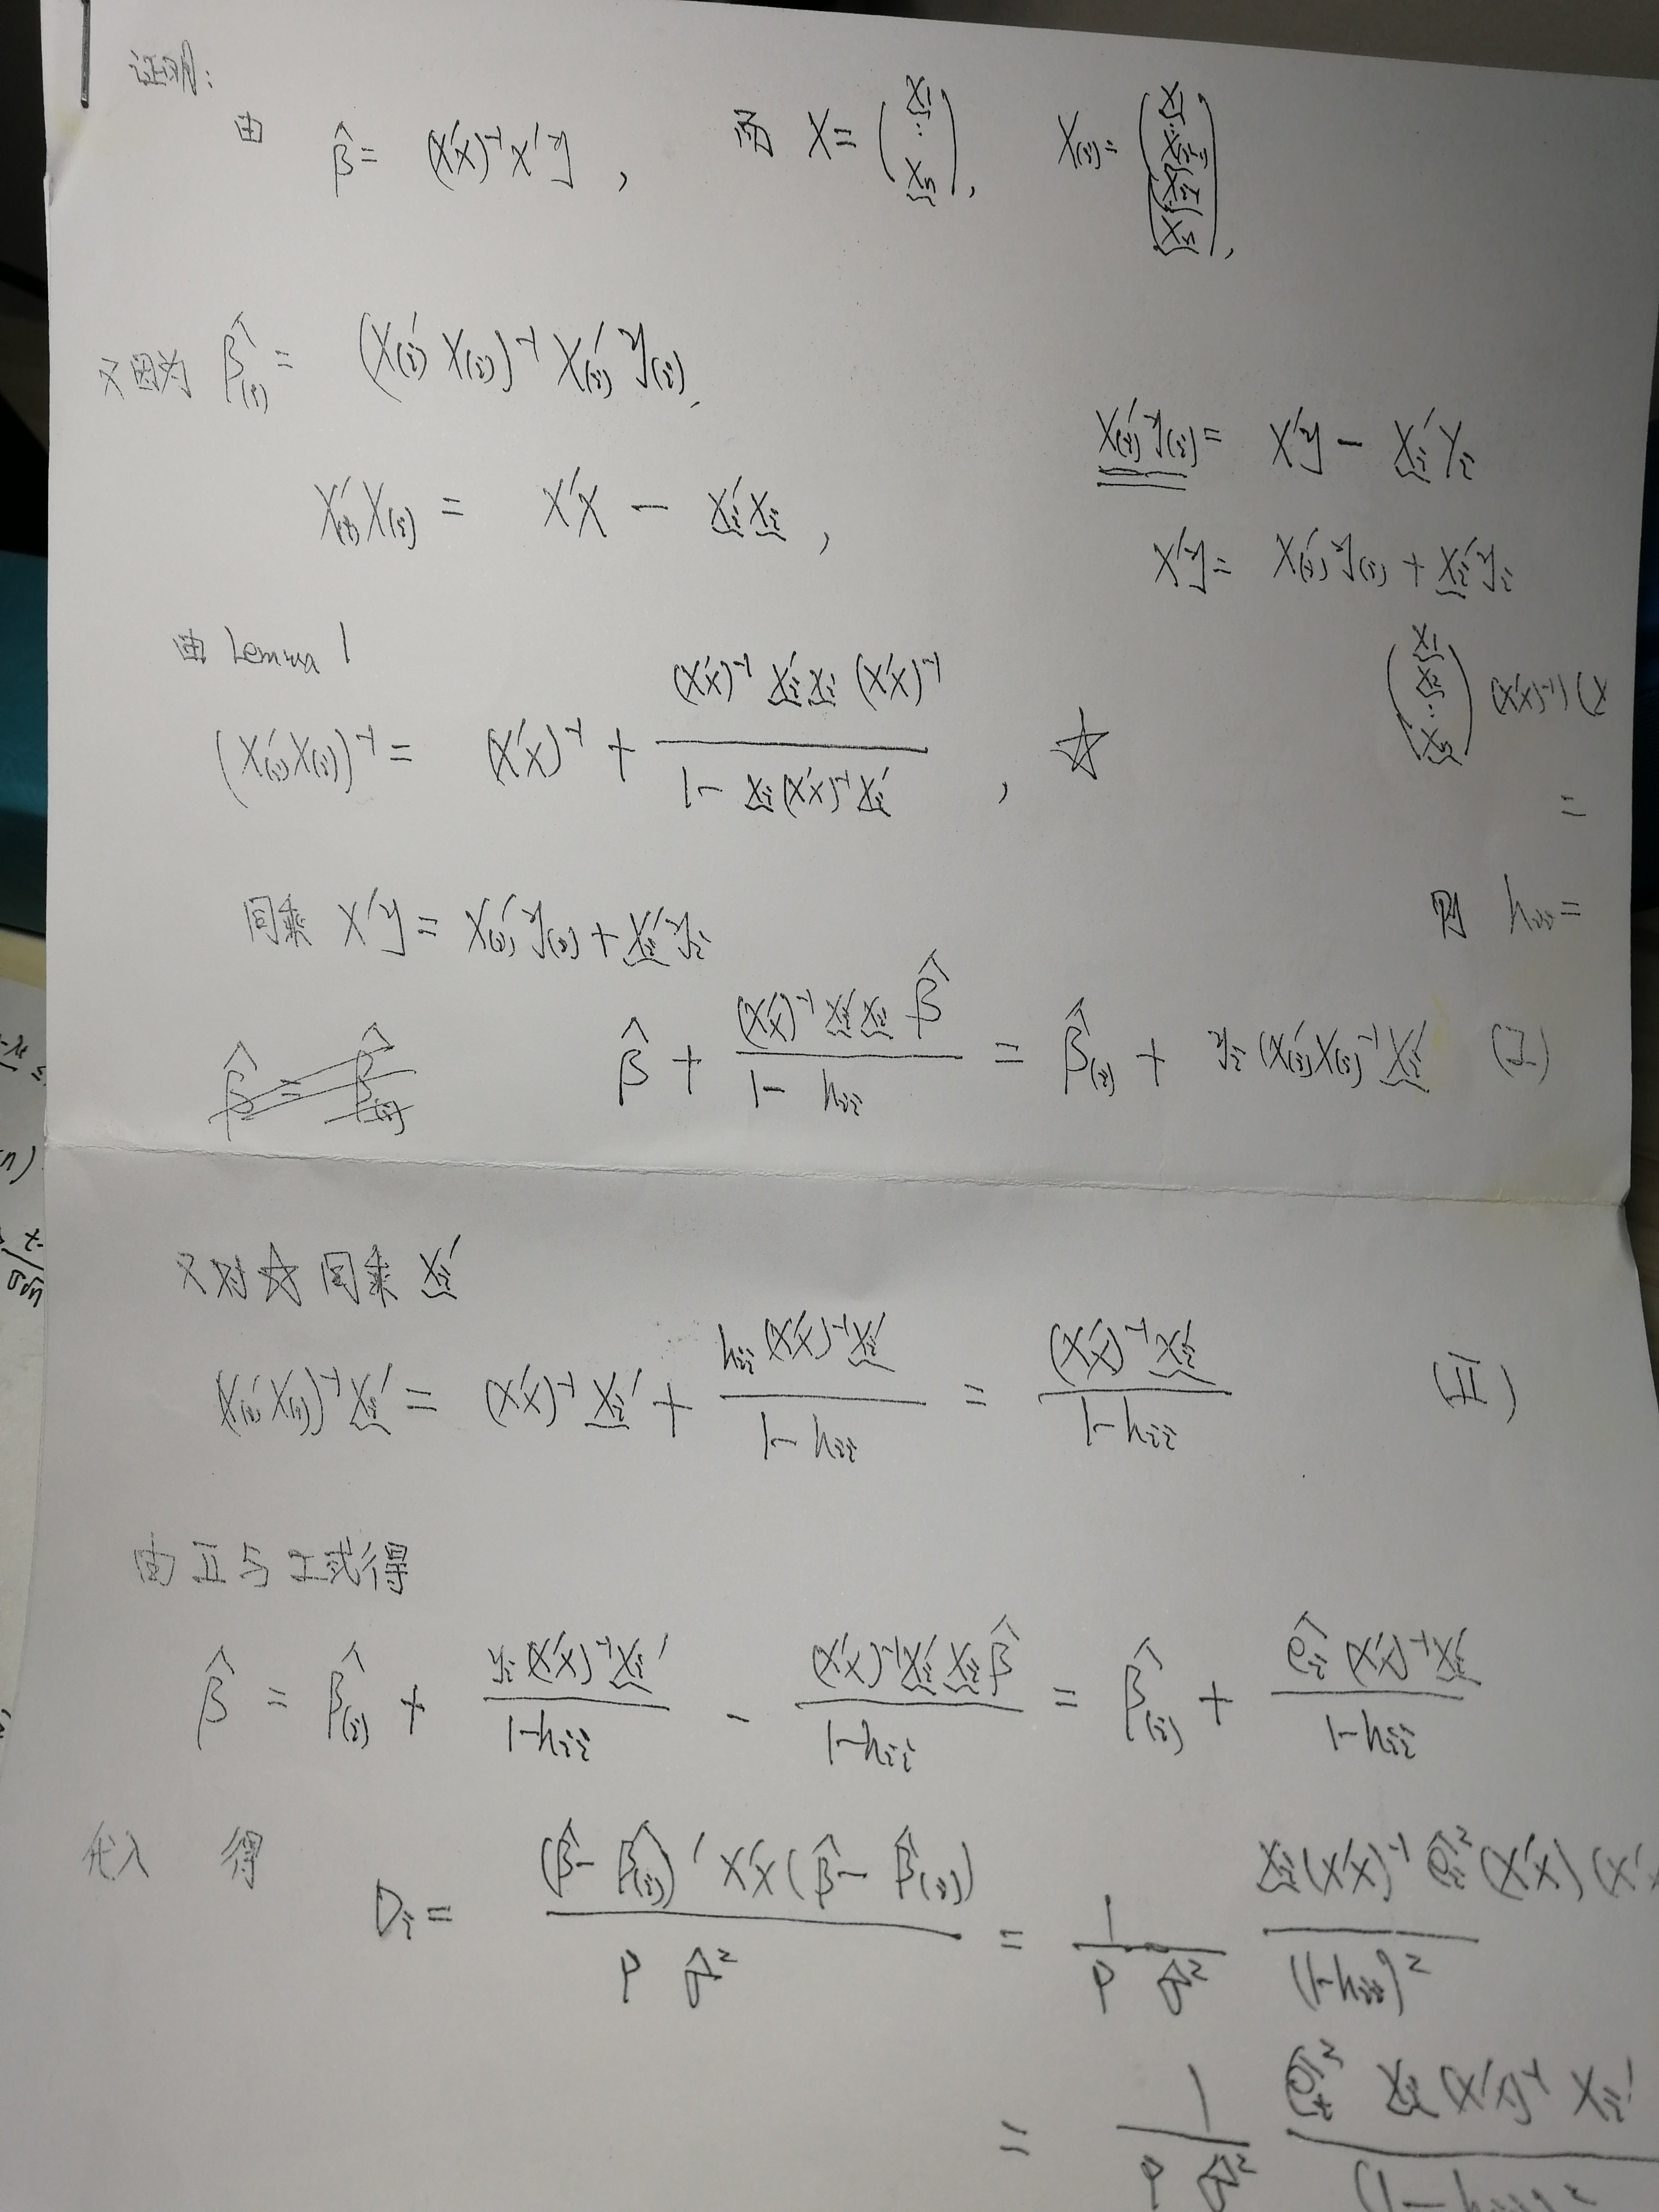 证明:
由 β̂ = (X'X)⁻¹X'y , 而 X = (x₁ ... xₙ), X₍ᵢ₎ =
又因为 β̂₍ᵢ₎ = (X₍ᵢ₎'X₍ᵢ₎)⁻¹X₍ᵢ₎'y₍ᵢ₎,
X₍ᵢ₎'y₍ᵢ₎ = X'y − xᵢ'yᵢ
X₍ᵢ₎'X₍ᵢ₎ = X'X − xᵢ'xᵢ ,
X'y = X₍ᵢ₎'y₍ᵢ₎ + xᵢ'yᵢ
由 Lemma 1
(X₍ᵢ₎'X₍ᵢ₎)⁻¹ = (X'X)⁻¹ + (X'X)⁻¹xᵢ'xᵢ(X'X)⁻¹ / (1 − xᵢ(X'X)⁻¹xᵢ') , ☆
(x₁ x₂ ... xₙ) (X'X)⁻¹) (x
=
同乘 X'y = X₍ᵢ₎'y₍ᵢ₎ + xᵢ'yᵢ
则 hᵢᵢ =
β̂ = β̂₍ᵢ₎ β̂ + (X'X)⁻¹xᵢ'xᵢβ̂ / (1 − hᵢᵢ) = β̂₍ᵢ₎ + yᵢ(X₍ᵢ₎'X₍ᵢ₎)⁻¹xᵢ' (I)
又对☆同乘 xᵢ'
(X₍ᵢ₎'X₍ᵢ₎)⁻¹xᵢ' = (X'X)⁻¹xᵢ' + hᵢᵢ(X'X)⁻¹xᵢ' / (1−hᵢᵢ) = (X'X)⁻¹xᵢ' / (1−hᵢᵢ) (II)
由 II 与 I 式得
β̂ = β̂₍ᵢ₎ + yᵢ(X'X)⁻¹xᵢ' / (1−hᵢᵢ) − (X'X)⁻¹xᵢ'xᵢβ̂ / (1−hᵢᵢ) = β̂₍ᵢ₎ + êᵢ(X'X)⁻¹xᵢ' / (1−hᵢᵢ)
代入 得
Dᵢ = (β̂ − β̂₍ᵢ₎)'X'X(β̂ − β̂₍ᵢ₎) / (p σ̂²) = 1/(p σ̂²) xᵢ(X'X)⁻¹êᵢ²(X'X)(X'X / (1−hᵢᵢ)²
= 1/(p σ̂²) êᵢ² xᵢ(X'X)⁻¹xᵢ' / (1−hᵢᵢ)²